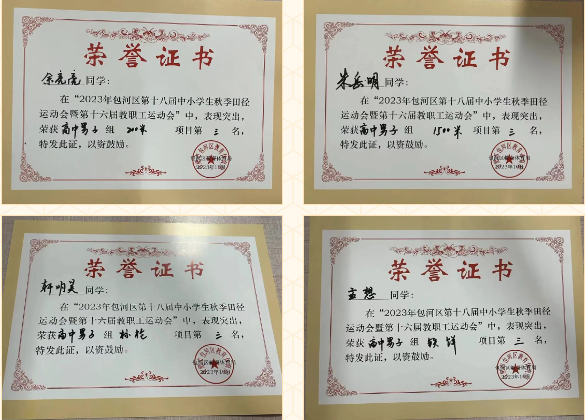 荣誉证书
余亮亮 同学:
在“2023年包河区第十八届中小学生秋季田径
运动会暨第十六届教职工运动会”中,表现突出,
荣获高中男子 组 200米 项目第 三 名,
特发此证,以资鼓励。
荣誉证书
朱岳明 同学:
在“2023年包河区第十八届中小学生秋季田径
运动会暨第十六届教职工运动会”中,表现突出,
荣获高中男子 组 1500米 项目第 三 名,
特发此证,以资鼓励。
荣誉证书
明昊 同学:
在“2023年包河区第十八届中小学生秋季田径
运动会暨第十六届教职工运动会”中,表现突出,
荣获高中男子 组 标枪 项目第 三 名,
特发此证,以资鼓励。
荣誉证书
孟想 同学:
在“2023年包河区第十八届中小学生秋季田径
运动会暨第十六届教职工运动会”中,表现突出,
荣获高中男子 组 铁饼 项目第 三 名,
特发此证,以资鼓励。